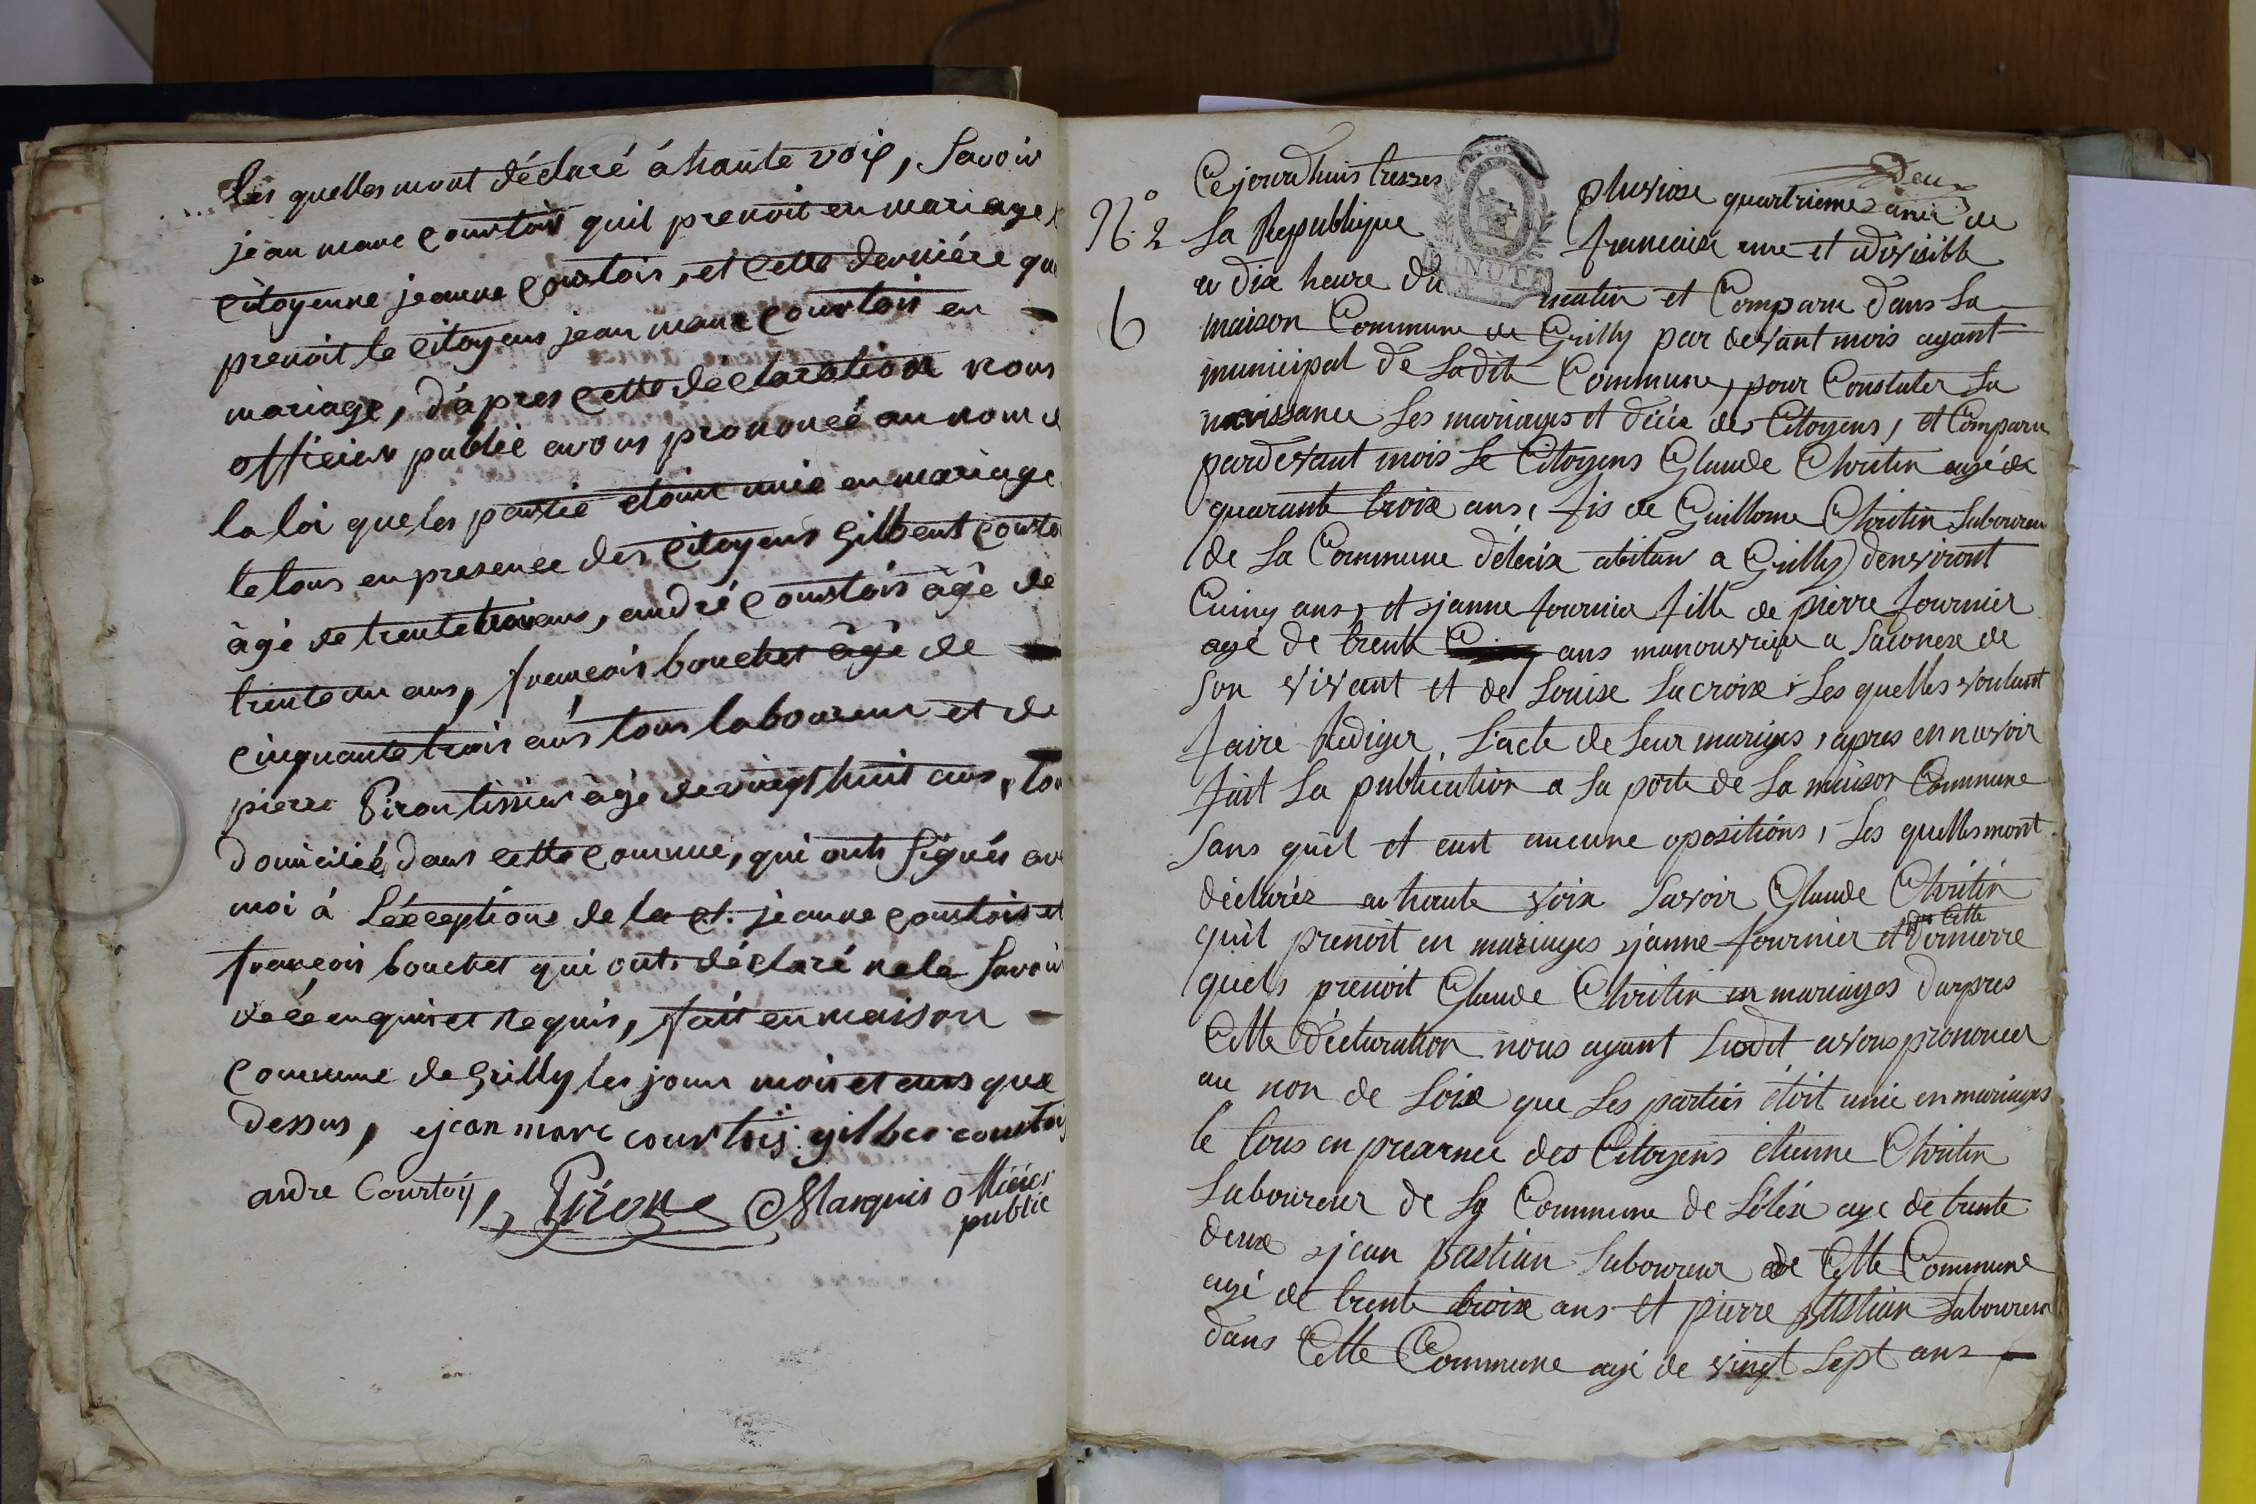 les quelles mont déclaré á haute voix, savoir
jean marc courtois quil prenoit en mariage
citoyenne jeanne courtois, et cette derniére que
prenoit le citoyens jean marc courtois en
mariage, d'áprés cette déclaration nous
officier public avons prononcé au nom d
la loi que les partie étoint unie en mariage
le tous en presence des citoyens gilbert courto
âgé de trente trois ans, andré courtois âgé de
trente un ans, françois bouchet âgé de
cinquante trois ans tous laboureur et de
pierre Piron tissier âgé de vingt huit ans, tou
domicilié dans cette commune, qui onts signés av
moi á Léxceptions de la ct. jeanne courtois et
françois bouchet qui onts déclaré ne le savoir
de ce enquis et requis, fait en maison
commune de grilly les jour mois et ans que
dessus, jean marc courtois gilber courtois
andre Courtois, Piron Marquis officier
public
Deux
N.º 2
6
Ce jourdhuis tresses pluviose quartrieme anné de
La Republique francaise une et idivisible
a dix heure du matin et Comparu dans La
MINUTE
maison Commune de Grilly par devant mois agant
municipal de Ladite Commune, pour Constater La
naissance Les mariages et décés des Citoyens, et Comparu
pardevant mois Le Citoyens Glaude Chritin agé de
quarante troix ans, fis de Guillome Chritin Laboureur
de La Commune déleix abitan a Grilly denviront
Cuinq ans, et janne fournier fille de pierre fournier
agé de trente ans manouvrier a Saconex de
Son vivant et de Louise Lacroix Les quelles voulant
faire Rediger L'acte de Leur mariges, apres en navoir
fait La publication a La porte de La maison Commune
Sans quil et eut aucune opositions, Les quelles mont
déclaréz au haute voix Savoir Glaude Chritin
quil prenoit en mariages janne fournier et cette dernierre
quels prenoit Glaude Chritin en mariages darpres
Cette Déclaration nous agant Ludit avons prononcer
au non de Loix que Les parties étoit unie en mariages
le tous en presence des Citoyens étienne Chritin
Laboureur de La Commune de Léléx age de trente
deux jean Bastian Laboureur de Cette Commune
agé de trente troix ans et pierre Bastian Laboureur
dans Cette Commune agé de vingt Sept ans